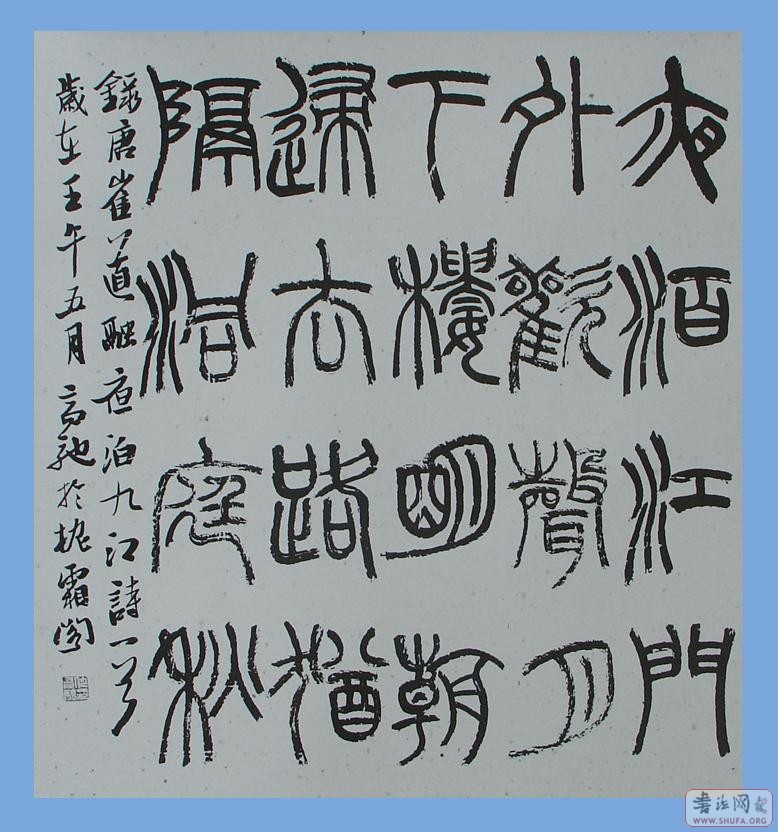 夜泊江門
外歡聲月
下樓明朝
歸去路猶
隔洞庭秋
錄唐崔道融夜泊九江詩一首
歲在壬午五月高於霜閣
書法网
WWW.SHUFA.ORG